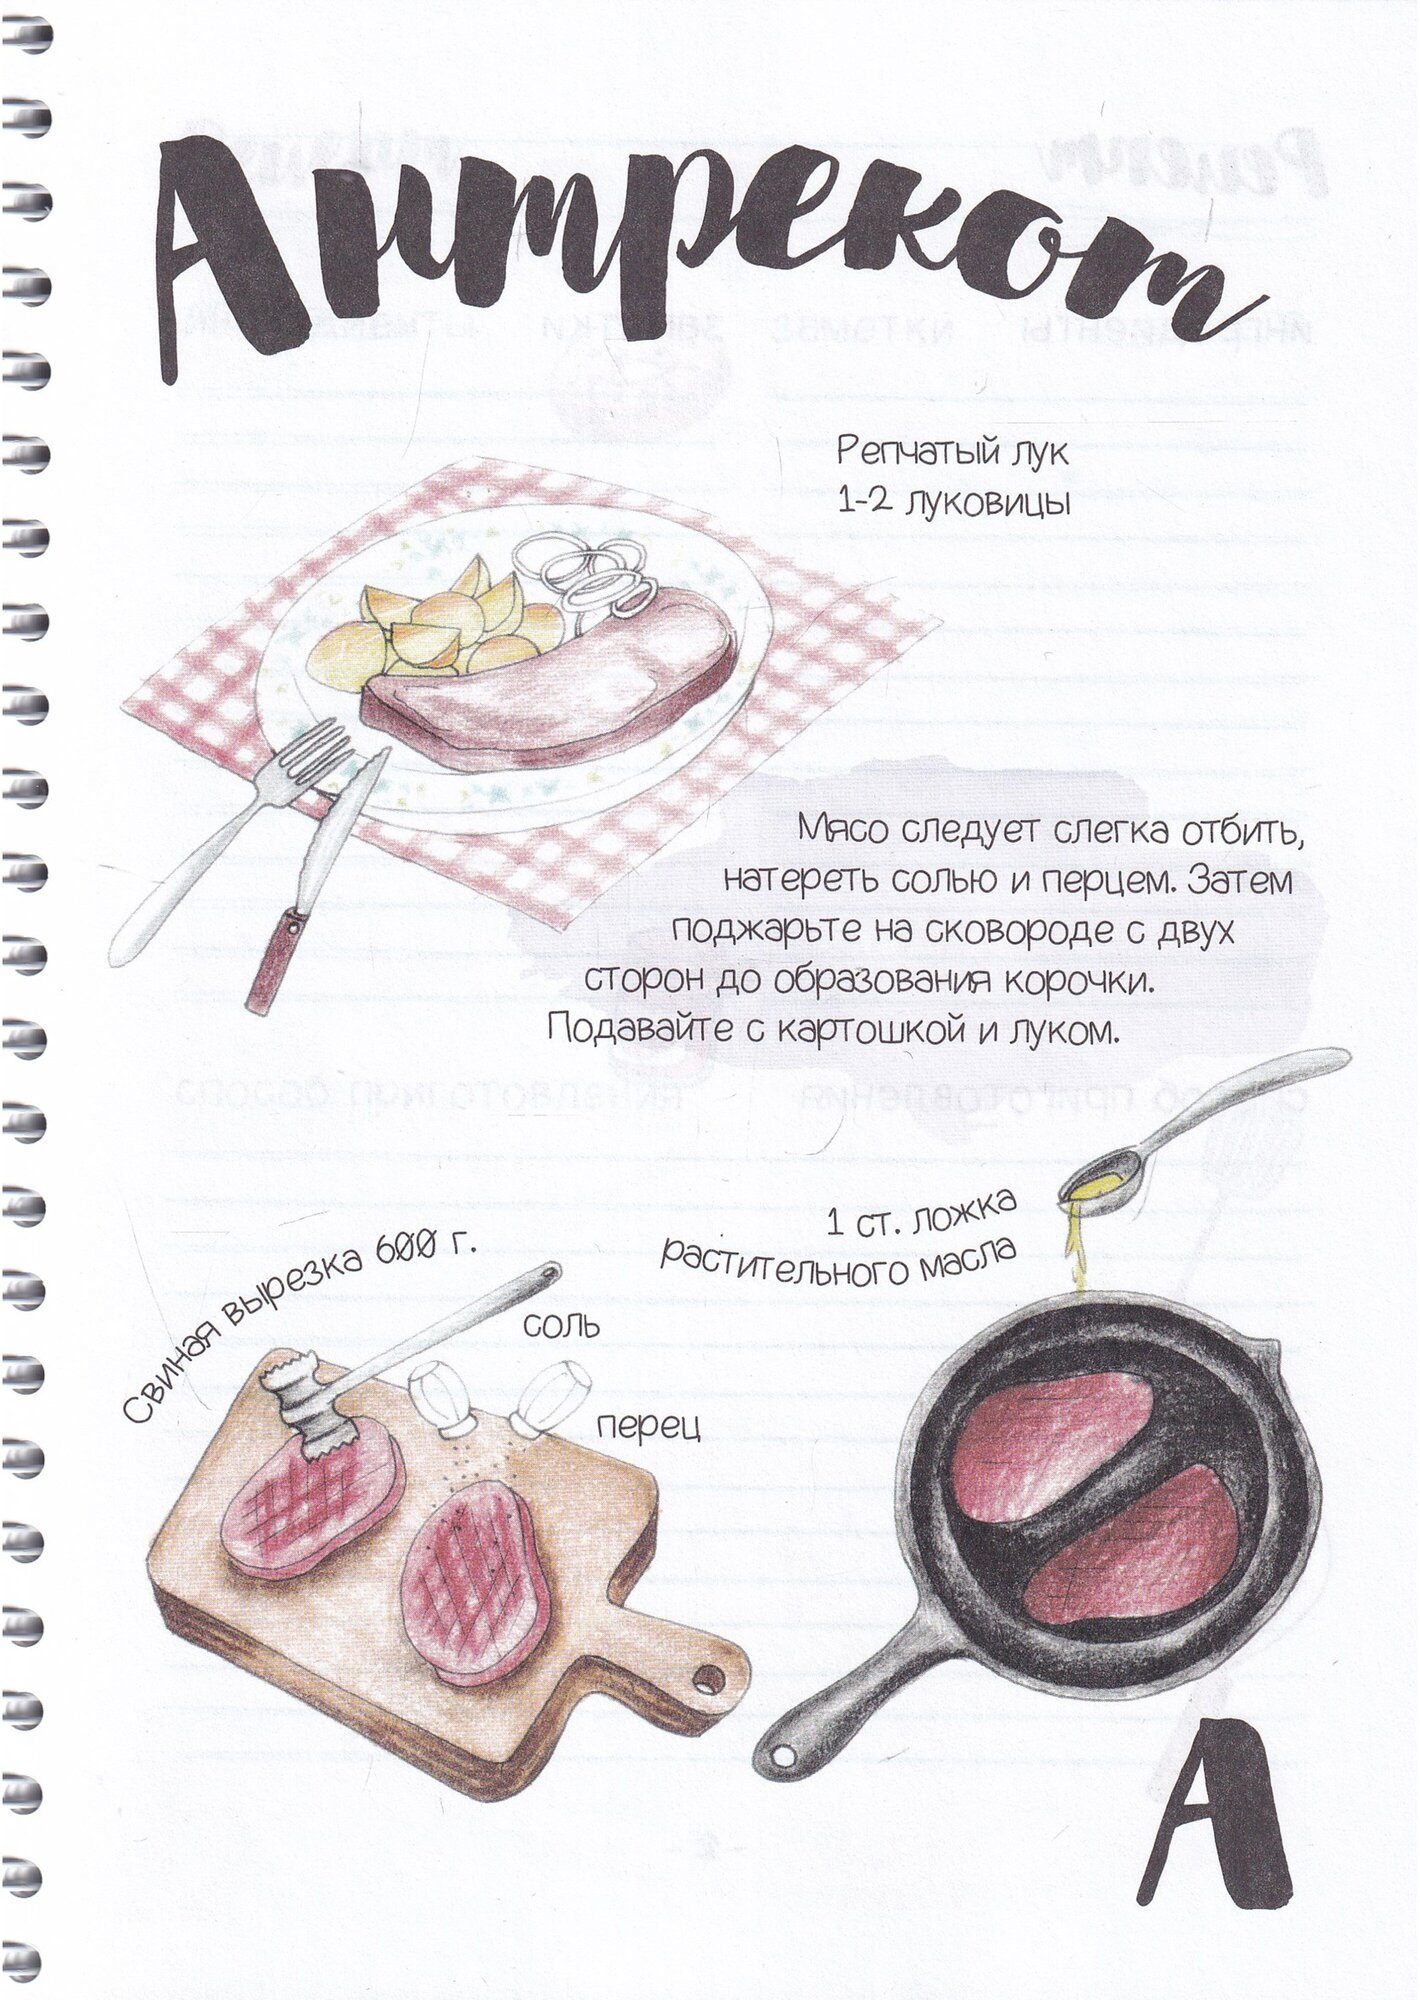 Антрекот
Репчатый лук
1-2 луковицы
Мясо следует слегка отбить,
натереть солью и перцем. Затем
поджарьте на сковороде с двух
сторон до образования корочки.
Подавайте с картошкой и луком.
1 ст. ложка
растительного масла
Свиная вырезка 600 г.
соль
перец
А